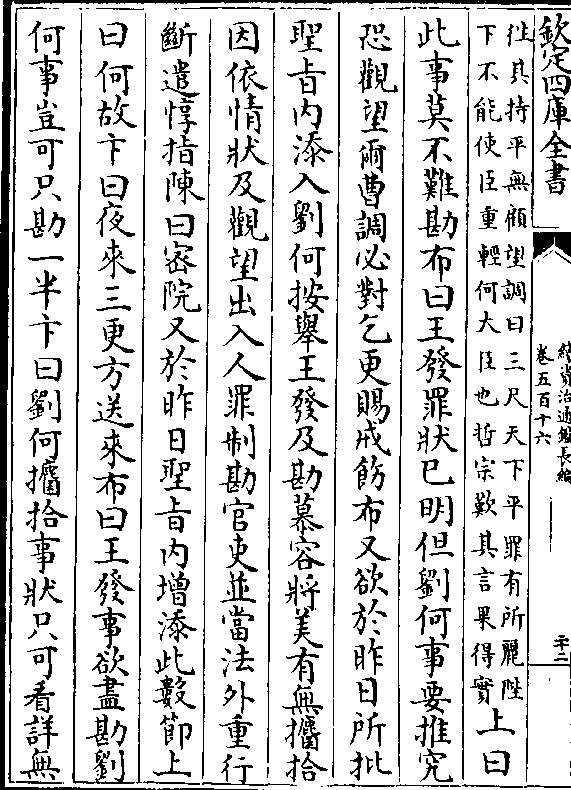 欽定四庫全書
續資治通鑑長編
卷五百十六
二十二
往其持平無顧望調曰三尺天下平罪有所麗陛
下不能使臣重輕何大臣也哲宗歎其言果得實
上曰
此事莫不難勘布曰王發罪狀已明但劉何事要推究
恐觀望爾曹調必對乞更賜戒飭布又欲於昨日所批
聖旨内添入劉何按舉王發及勘慕容將美有無攟拾
因依情狀及觀望出入人罪制勘官吏並當法外重行
斷遣惇指陳曰宻院又於昨日聖旨内增添此數節上
曰何故卞曰夜來三更方送來布曰王發事欲盡勘劉
何事豈可只勘一半卞曰劉何攟拾事狀只可看詳無